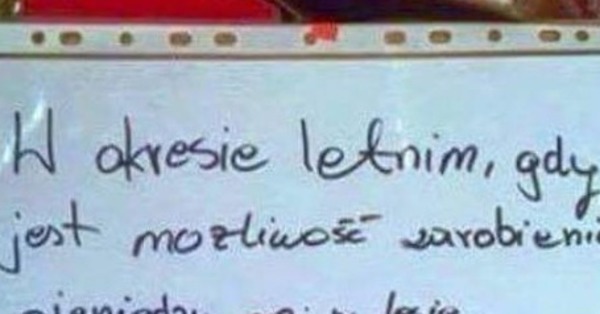 W okresie letnim, gdy
jest możliwość zarobieni